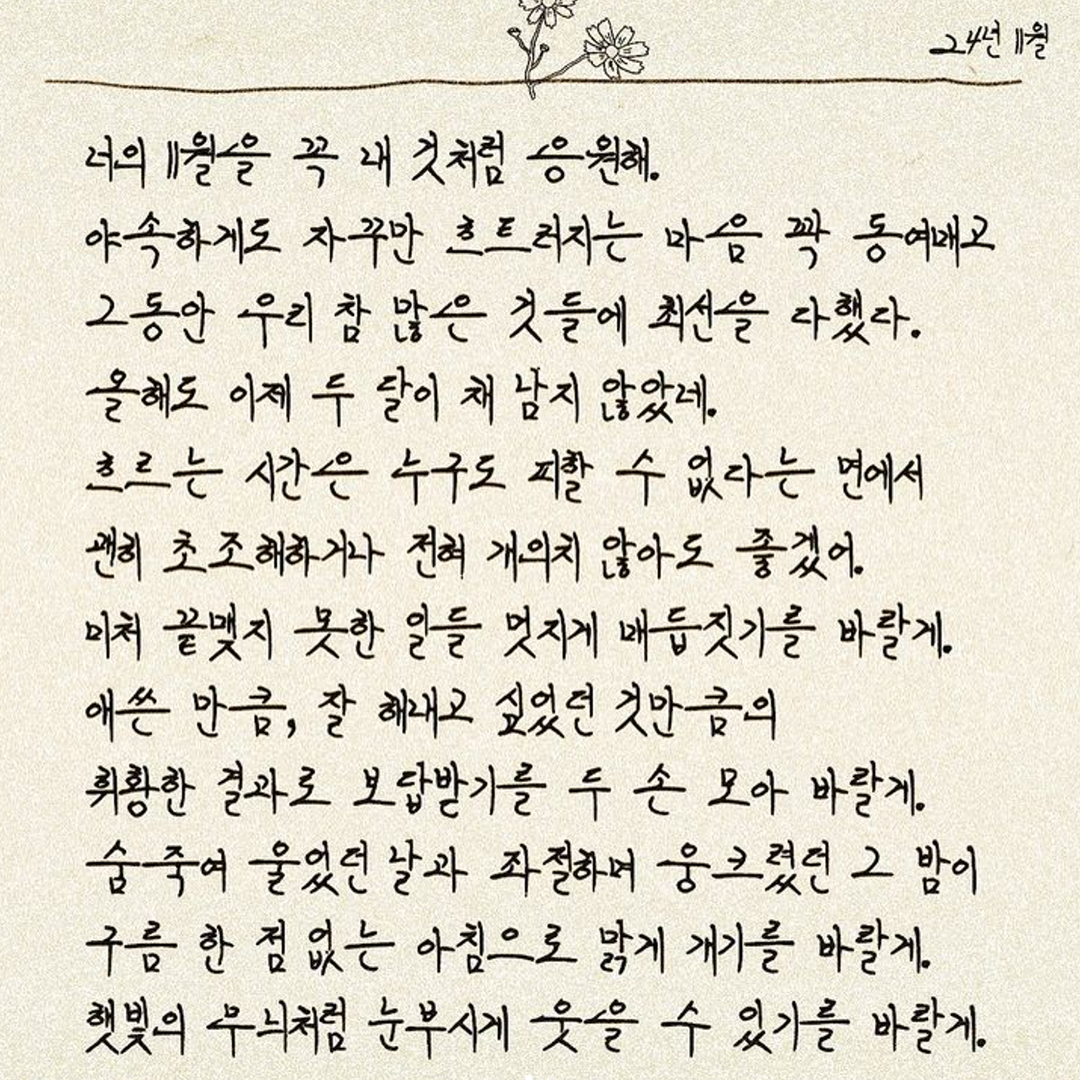 24년 11월
너의 11월을 꼭 내 것처럼 응원해.
야속하게도 자꾸만 흐트러지는 마음 꽉 동여매고
그동안 우리 참 많은 것들에 최선을 다했다.
올해도 이제 두 달이 채 남지 않았네.
흐르는 시간은 누구도 피할 수 없다는 면에서
괜히 초조해하거나 전혀 개의치 않아도 좋겠어.
미처 끝맺지 못한 일들 멋지게 매듭짓기를 바랄게.
애쓴 만큼, 잘 해내고 싶었던 것만큼의
휘황한 결과로 보답받기를 두 손 모아 바랄게.
숨죽여 울었던 날과 좌절하며 웅크렸던 그 밤이
구름 한 점 없는 아침으로 맑게 개기를 바랄게.
햇빛의 무늬처럼 눈부시게 웃을 수 있기를 바랄게.